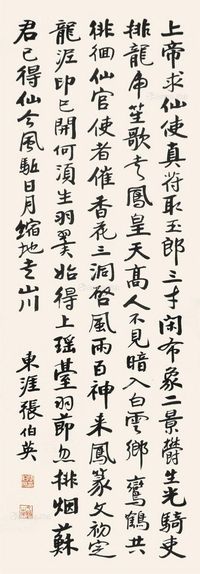 上帝求仙使真符取玉郎三才閑布象二景鬱生光騎吏
排龍虎笙歌走鳳皇天高人不見暗入白雲鄉鸞鶴共
徘徊仙官使者催香花三洞啓風雨百神來鳳篆文初定
龍泥印已開何須生羽翼始得上瑤臺羽節忽排烟蘇
君已得仙令風驅日月縮地走山川
東涯張伯英